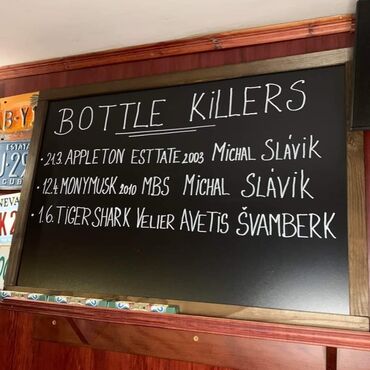 BOTTLE KiLLERS
• 21.3. APPLETON ESTTATE 2003 MiCHAL SLÁVIK
• 12.4 MONYMUSK 2010 MBS MiCHAL SLÁVIK
• 1.6. TIGER SHARK VELIER AVETIS ŠVAMBERK
B·Y
ESTATA
CUB
NEVA